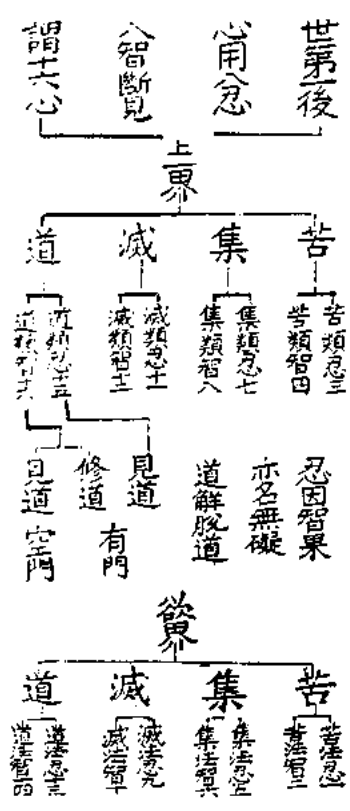 世第一後
心用八忍
八智斷見
謂十六心
上界
苦
集
滅
道
苦類忍三
苦類智四
集類忍七
集類智八
滅類忍十一
滅類智十二
道類忍十五
道類智十六
見道
修道
見道
有門
空門
忍因智果
亦名無礙
道解脫道
欲界
苦
集
滅
道
苦法忍一
苦法智二
集法忍五
集法智六
滅法忍九
滅法智十
道法忍十三
道法智十四